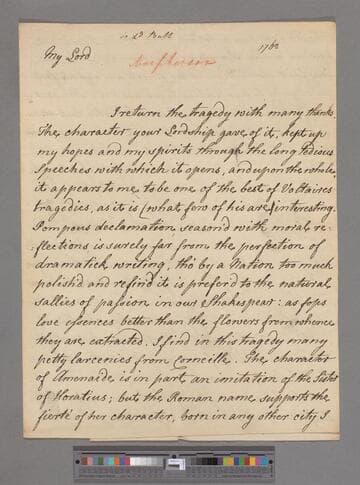 to Ld Bath
1760
My Lord
I return the tragedy with many thanks.
The character your Lordship gave of it, kept up
my hopes and my spirits through the long tedious
speeches with which it opens, and upon the whole
it appears to me to be one of the best of Voltaires
tragedies, as it is (what few of his are) interesting.
Pompous declamation, season'd with moral re-
flections is surely far from the perfection of
dramatick writing, tho' by a Nation too much
polish'd and refin'd it is prefer'd to the natural
sallies of passion in our Shakespear: as fops
love essences better than the flowers from whence
they are extracted. I find in this tragedy many
petty larcenies from Corneille. The character
of Amenaide is in part an imitation of the Sister
of Horatius; but the Roman name supports the
fierté of her character, born in any other city I